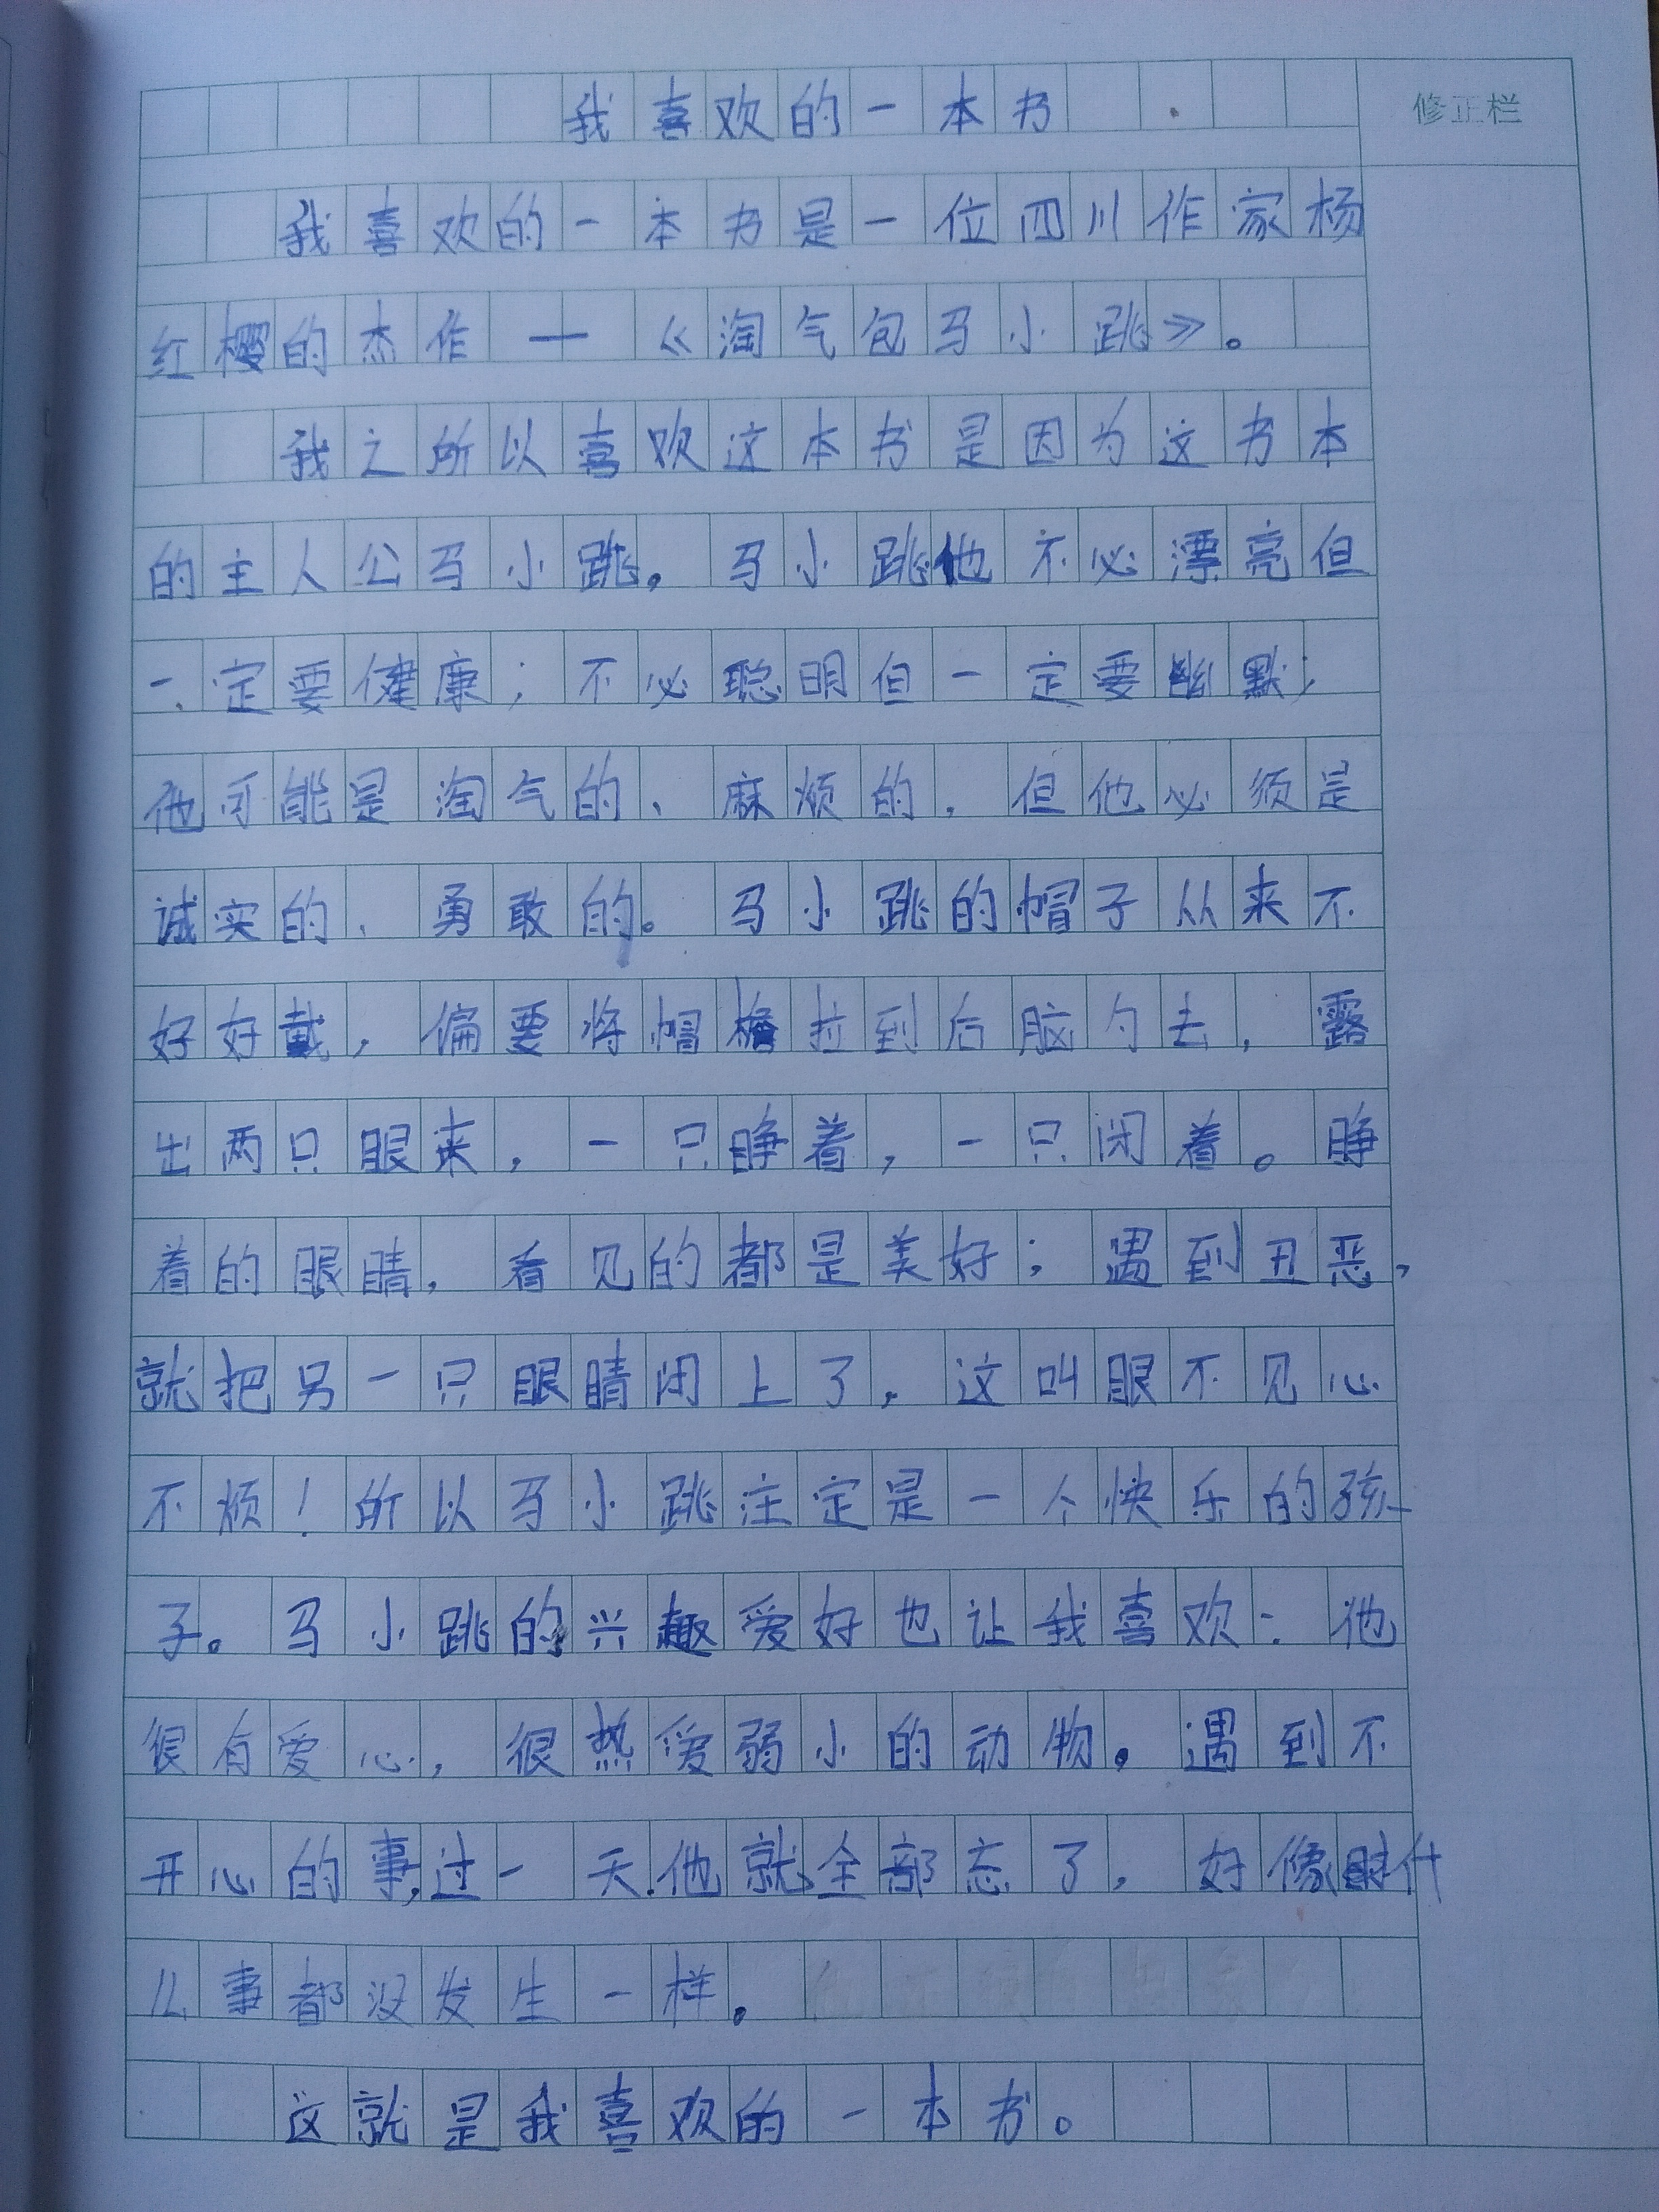 我喜欢的一本书
修正栏
我喜欢的一本书是一位四川作家杨
红樱的杰作——《淘气包马小跳》。
我之所以喜欢这本书是因为这书本
的主人公马小跳。马小跳他不必漂亮但
一定要健康；不必聪明但一定要幽默；
他可能是淘气的、麻烦的，但他必须是
诚实的、勇敢的。马小跳的帽子从来不
好好戴，偏要将帽檐拉到后脑勺去，露
出两只眼来，一只睁着，一只闭着。睁
着的眼睛，看见的都是美好；遇到丑恶，
就把另一只眼睛闭上了，这叫眼不见心
不烦！所以马小跳注定是一个快乐的孩
子。马小跳的兴趣爱好也让我喜欢：他
很有爱心，很热爱弱小的动物。遇到不
开心的事，过一天，他就全部忘了，好像什
么事都没发生一样。
这就是我喜欢的一本书。